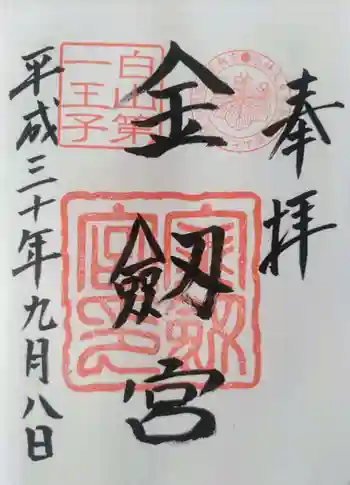 奉拝
白山第
一王子
金
劔
宮
金劔
宮印
平成三十年九月八日